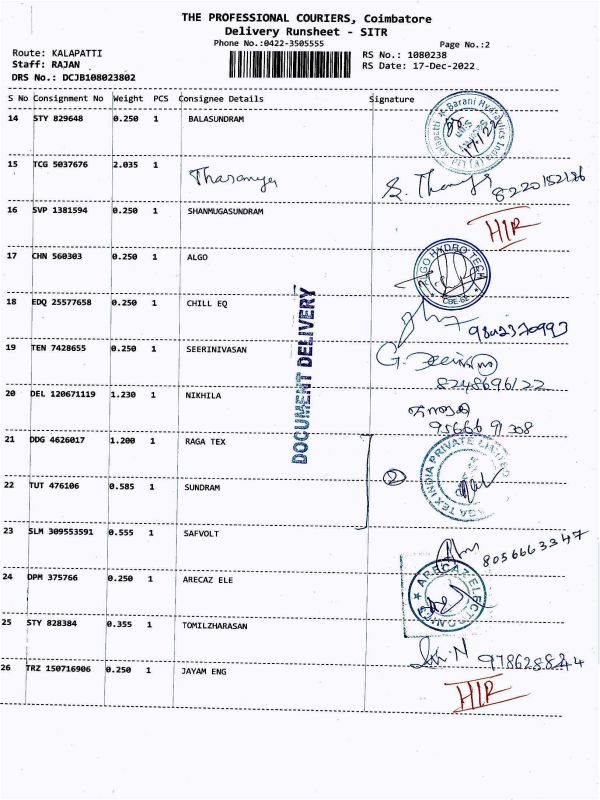 THE PROFESSIONAL COURIERS, Coimbatore
Delivery Runsheet - SITR
Phone No.:0422-3505555
Page No.:2
Route: KALAPATTI
RS No.: 1080238
Staff: RAJAN
RS Date: 17-Dec-2022
DRS No.: DCJB108023802
S No Consignment No Weight PCS Consignee Details Signature
14 STY 829648 0.250 1 BALASUNDRAM
15 TCG 5037676 2.035 1 Tharanya 8220152126
16 SVP 1381594 0.250 1 SHANMUGASUNDRAM HIR
17 CHN 560303 0.250 1 ALGO
ALGO HYDRO TECH
CBE-
18 EDQ 25577658 0.250 1 CHILL EQ
DOCUMENT DELIVERY
19 TEN 7428655 0.250 1 SEERINIVASAN
8248696122
20 DEL 120671119 1.230 1 NIKHILA
21 DDG 4626017 1.200 1 RAGA TEX
RAGA TEX INDIA PRIVATE LIMITED
22 TUT 476106 0.585 1 SUNDRAM
2
23 SLM 309553591 0.555 1 SAFVOLT
8056663347
24 DPM 375766 0.250 1 ARECAZ ELE
ARECAZ ELECTRONICS
25 STY 828384 0.355 1 TOMILZHARASAN
26 TRZ 150716906 0.250 1 JAYAM ENG HIR